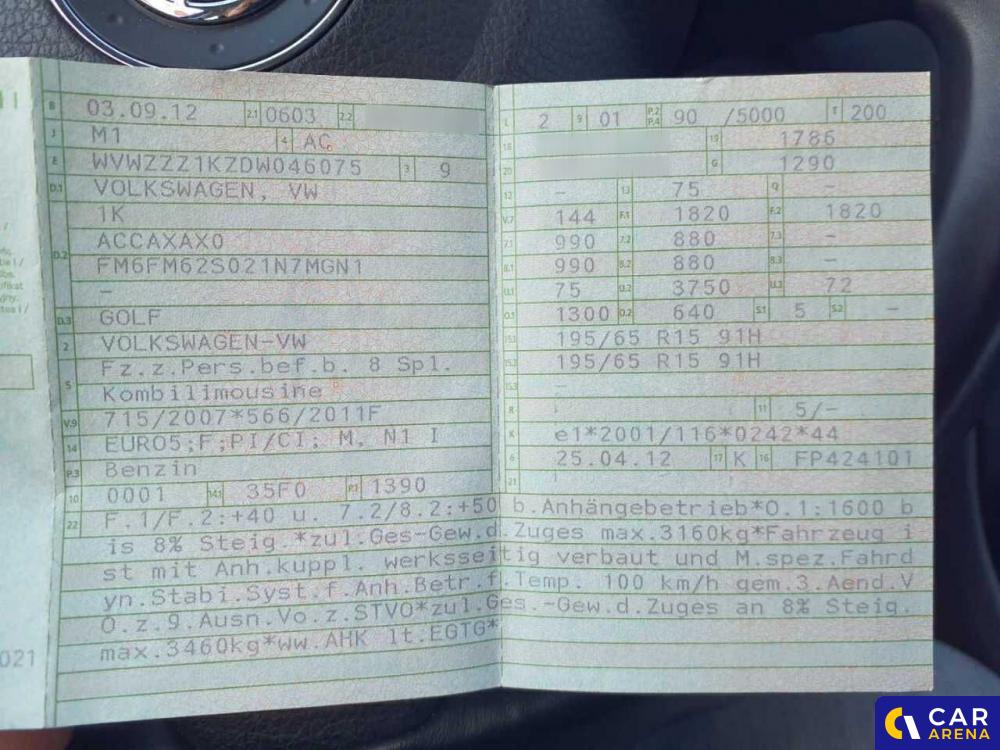 B 03.09.12 2.1 0603 2.2
J M1 4 AC
E WVWZZZ1KZDW046075 3 9
D.1 VOLKSWAGEN, VW
1K
D.2 ACCAXAX0
FM6FM62S021N7MGN1
–
D.3 GOLF
2 VOLKSWAGEN-VW
5 Fz.z.Pers.bef.b. 8 Spl.
Kombilimousine
V.9 715/2007*566/2011F
14 EURO5;F;PI/CI; M, N1 I
P.3 Benzin
10 0001 14.1 35F0 P.1 1390
L 2 9 01 P.2 P.4 90 /5000 T 200
18 19 1786
20 G 1290
12 – 13 75 Q –
V.7 144 F.1 1820 F.2 1820
7.1 990 7.2 880 7.3 –
8.1 990 8.2 880 8.3 –
U.1 75 U.2 3750 U.3 72
O.1 1300 O.2 640 S.1 5 S.2 –
15.1 195/65 R15 91H
15.2 195/65 R15 91H
15.3 –
R 11 5/–
K e1*2001/116*0242*44
6 25.04.12 17 K 16 FP424101
21
22 F.1/F.2:+40 u. 7.2/8.2:+50 b.Anhängebetrieb*O.1:1600 b
is 8% Steig.*zul.Ges-Gew.d.Zuges max.3160kg*Fahrzeug i
st mit Anh.kuppl. werksseitig verbaut und M.spez.Fahrd
yn.Stabi.Syst.f.Anh.Betr.f.Temp. 100 km/h gem.3.Aend.V
O.z.9.Ausn.Vo.z.STVO*zul.Ges.-Gew.d.Zuges an 8% Steig.
max.3460kg*ww.AHK lt.EGTG*
021
CAR
ARENA